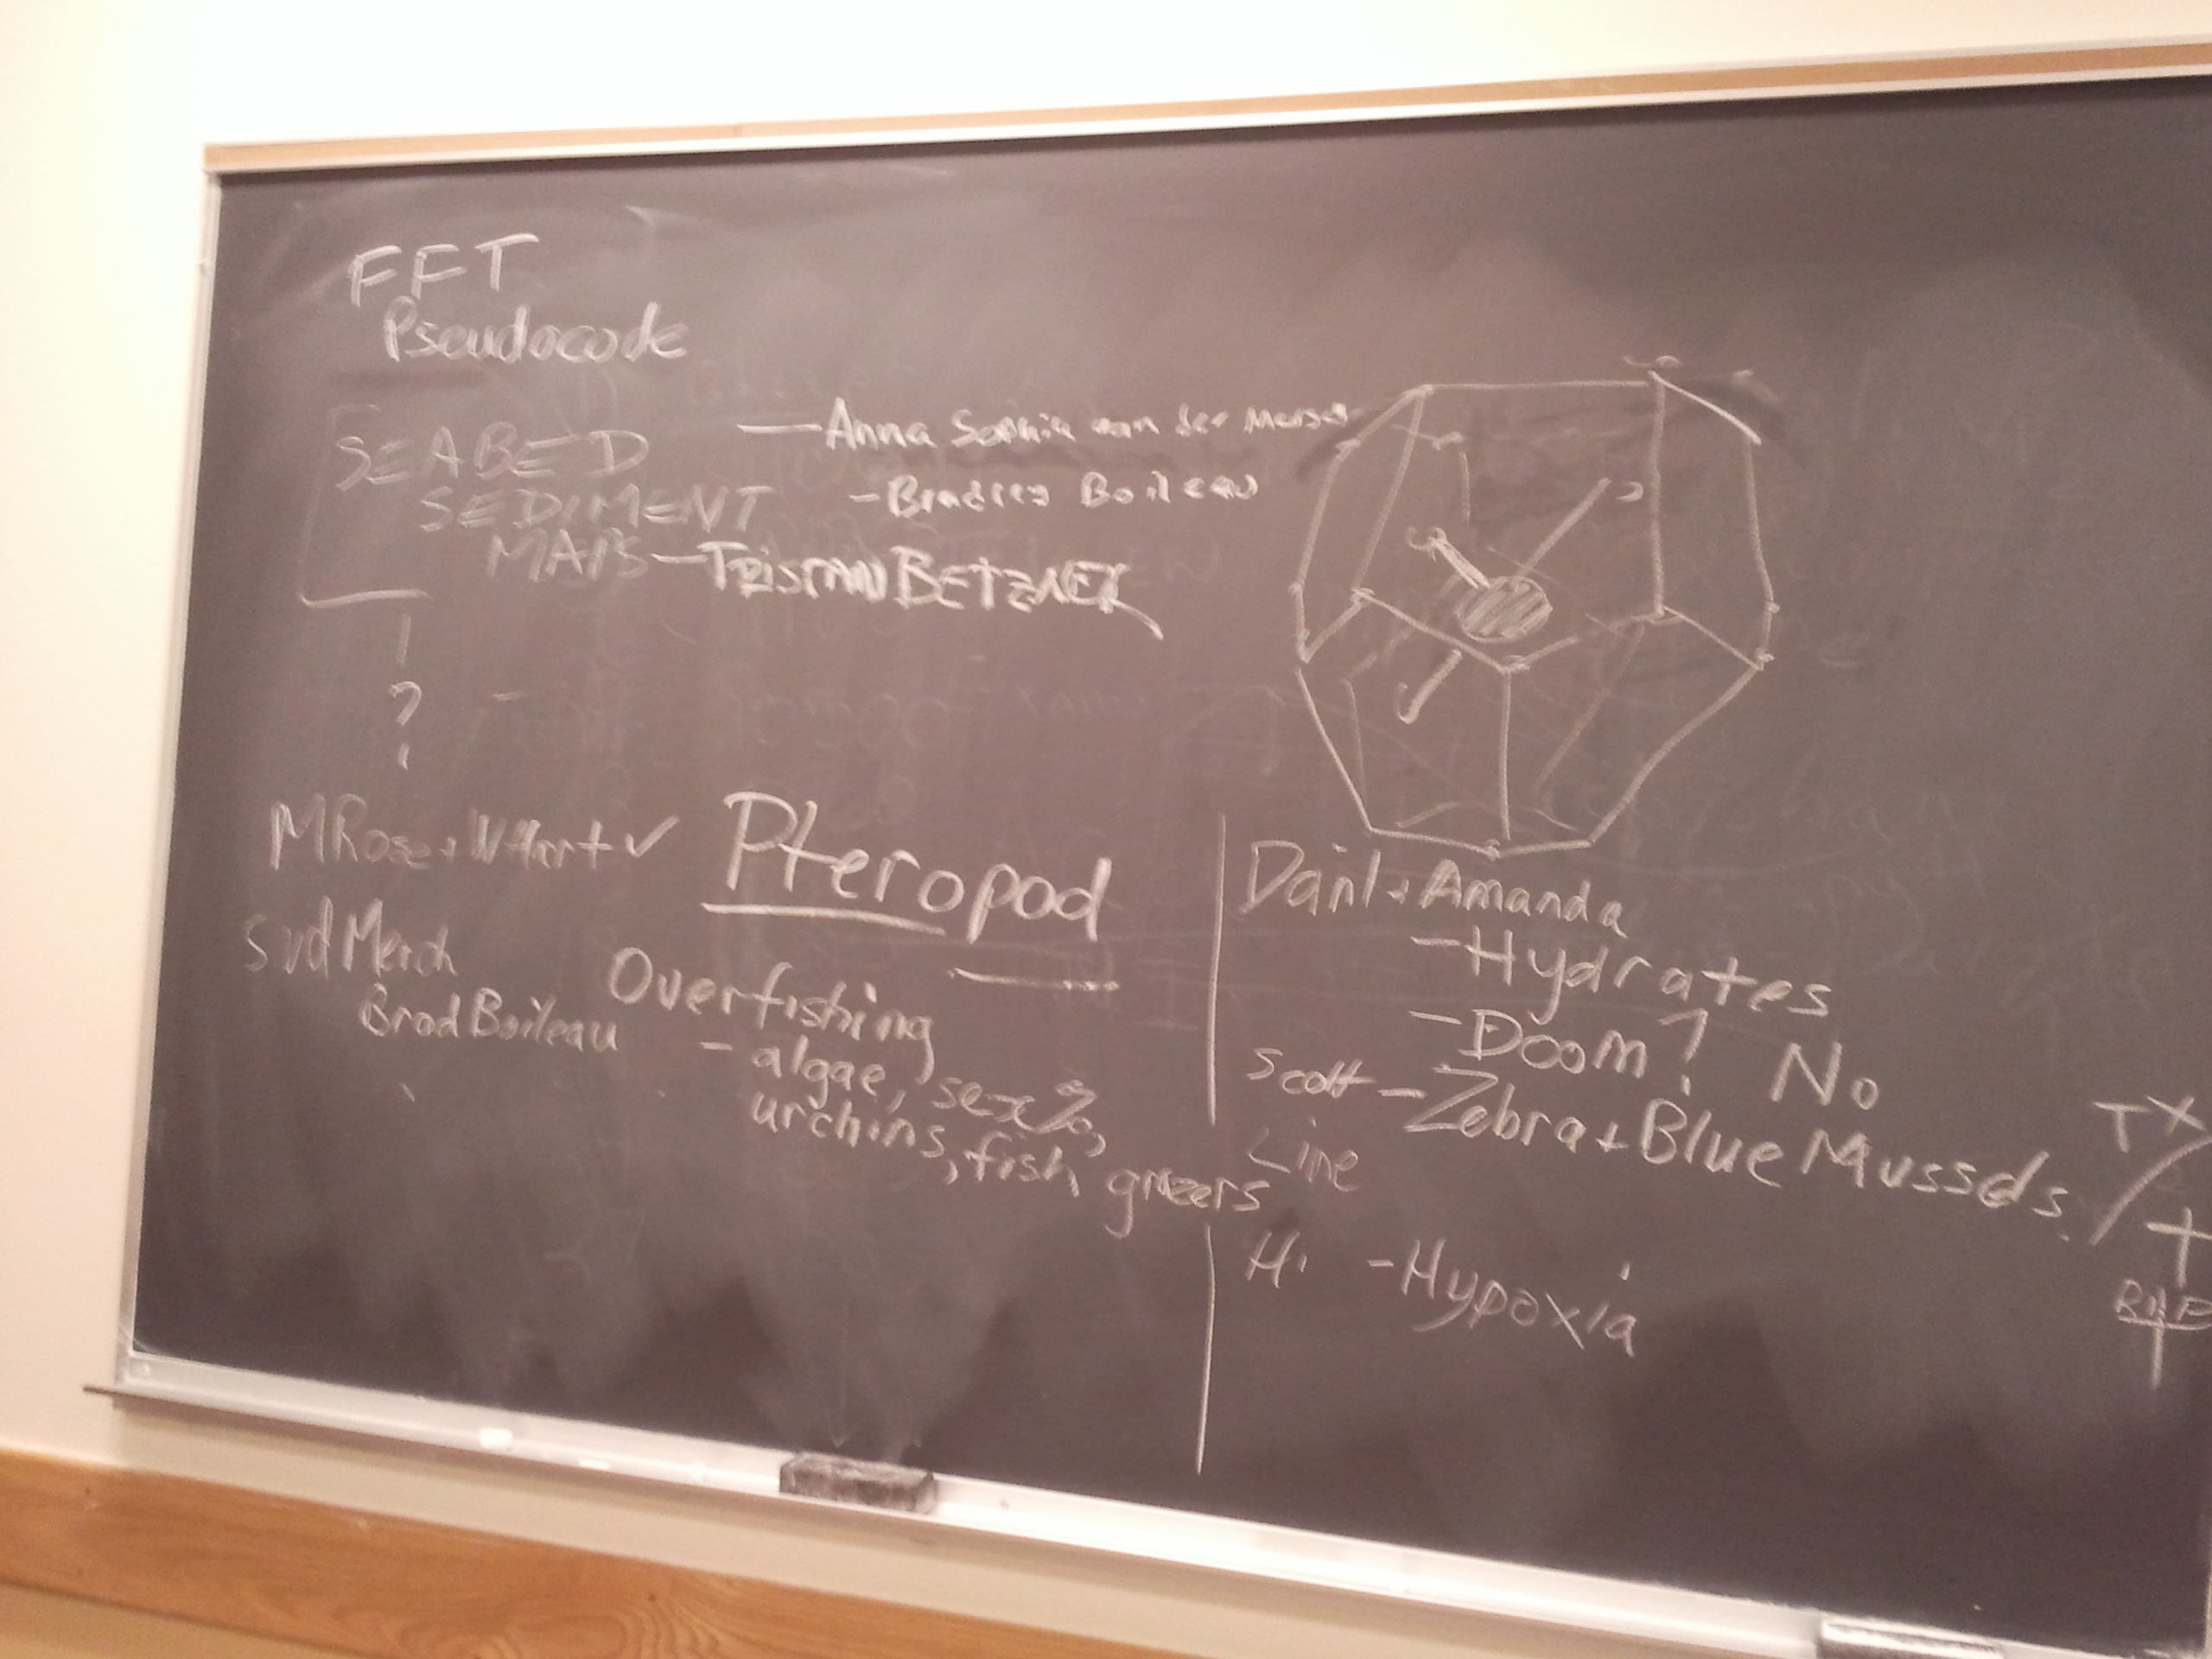 FFT
Pseudocode
SEABED
SEDIMENT
MAPS
— Anna Sophia van der
- Bradley Boileau
- TRISTAN BETZNER
?
MRose + WHart ✓
SvdMerch
Brad Boileau
Pteropod
Overfishing
- algae, sex%,
urchins, fish grazers
Danl + Amanda
- Hydrates
- Doom? No
Scott - Zebra + Blue Mussels
Line
Hi - Hypoxia
TX
+